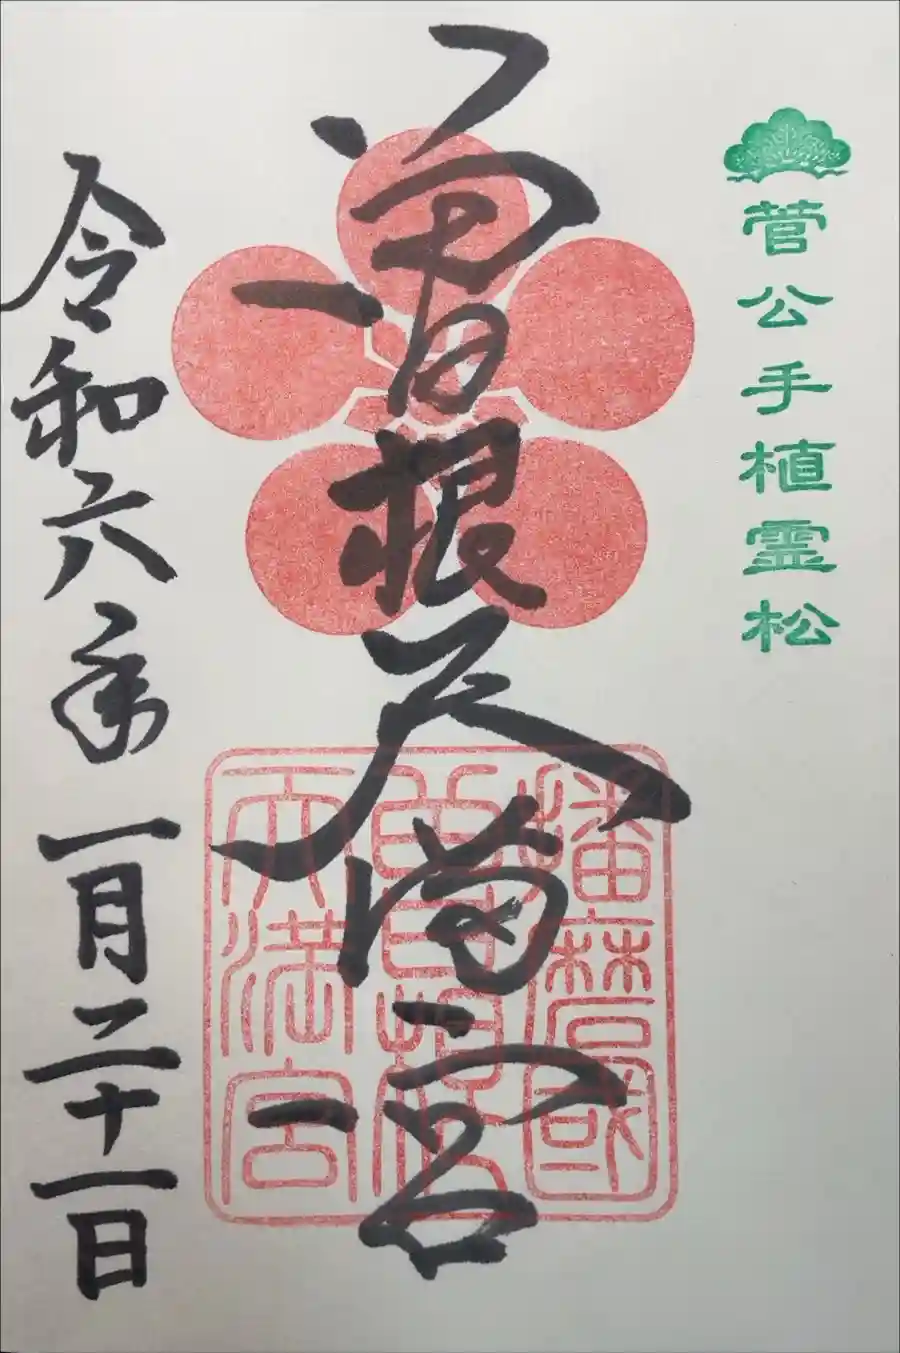 菅公手植霊松
曽根天満宮
播磨國
曽根
天満宮
令和六年一月二十一日